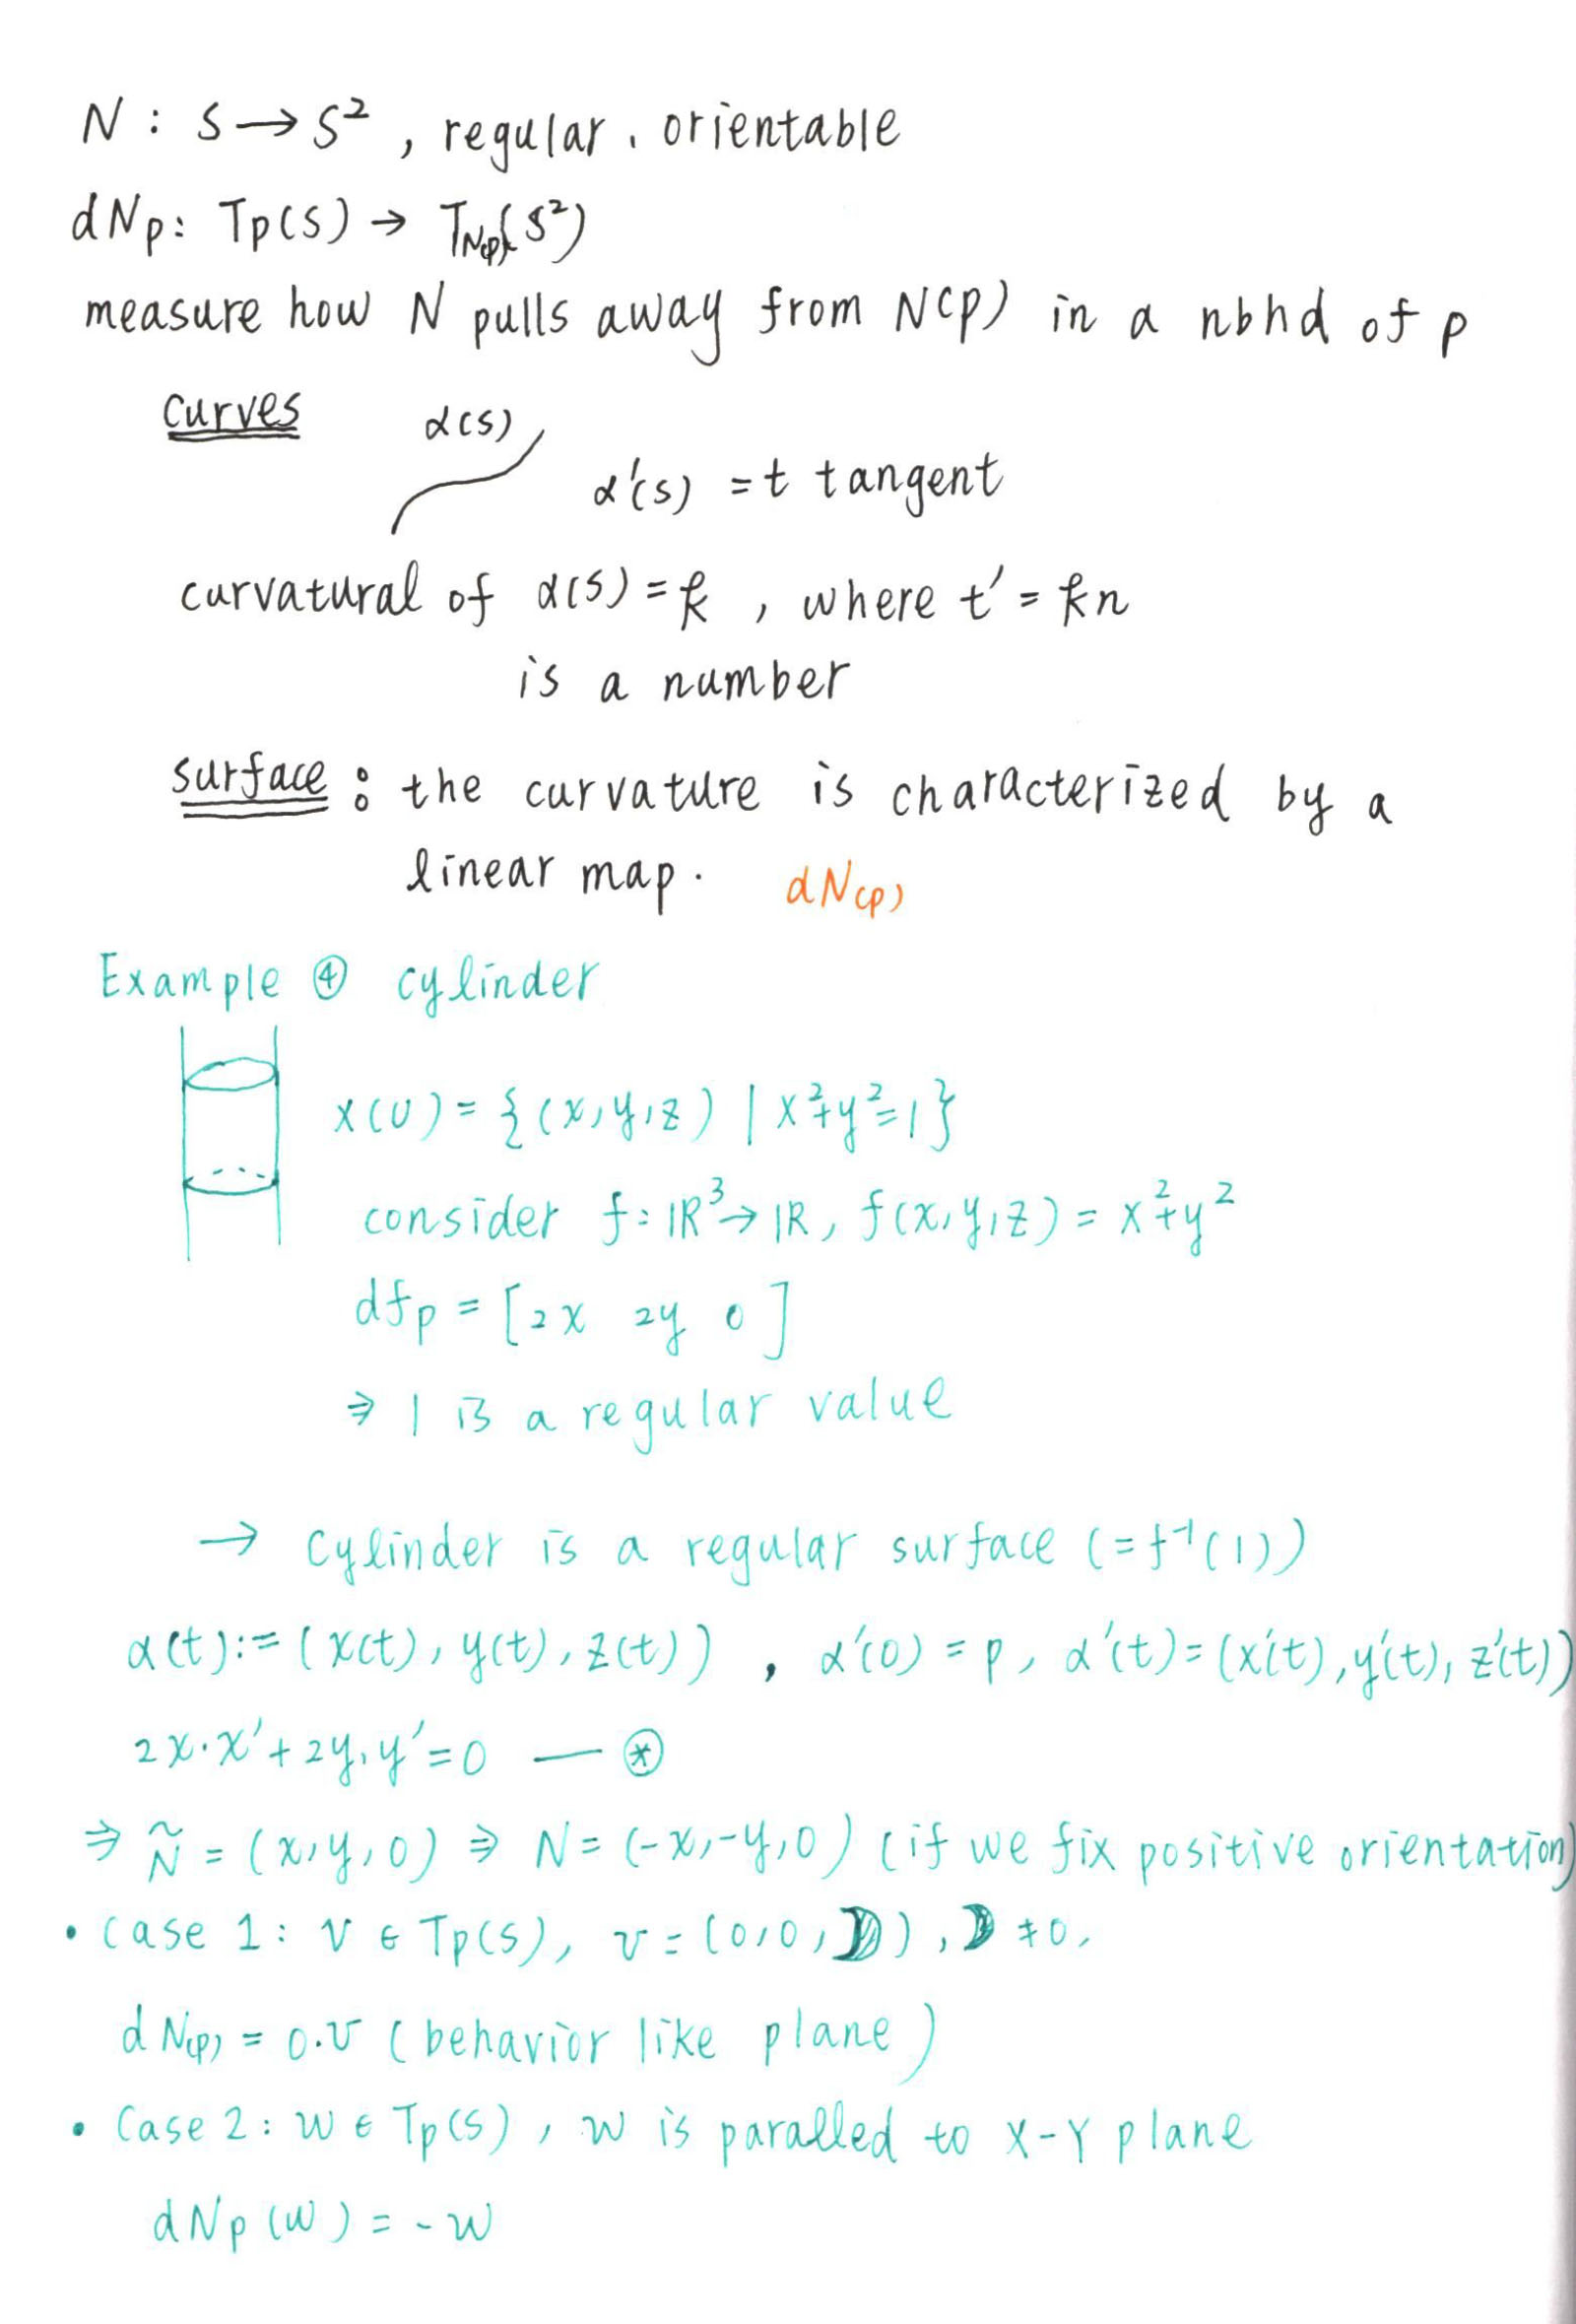 N : S → S² , regular , orientable
dNp: Tp(S) → T_N(p)(S²)
measure how N pulls away from N(p) in a nbhd of p
curves α(s)
α'(s) = t tangent
curvatural of α(s) = k , where t' = kn
is a number
surface : the curvature is characterized by a
linear map. dN(p)
Example ④ cylinder
X(U) = {(x,y,z) | x²+y²=1}
consider f: ℝ³→ℝ, f(x,y,z) = x²+y²
dfp = [2x 2y 0]
⇒ 1 is a regular value
→ Cylinder is a regular surface (=f⁻¹(1))
α(t):= (x(t), y(t), z(t)) , α'(0) = p, α'(t) = (x'(t), y'(t), z'(t))
2x·x' + 2y·y' = 0 — ⊛
⇒ Ñ = (x,y,0) ⇒ N = (-x,-y,0) (if we fix positive orientation)
• Case 1: v ∈ Tp(S), v = (0,0,D), D ≠ 0,
dN(p) = 0·v (behavior like plane)
• Case 2: w ∈ Tp(S), w is paralled to X-Y plane
dNp(w) = -w